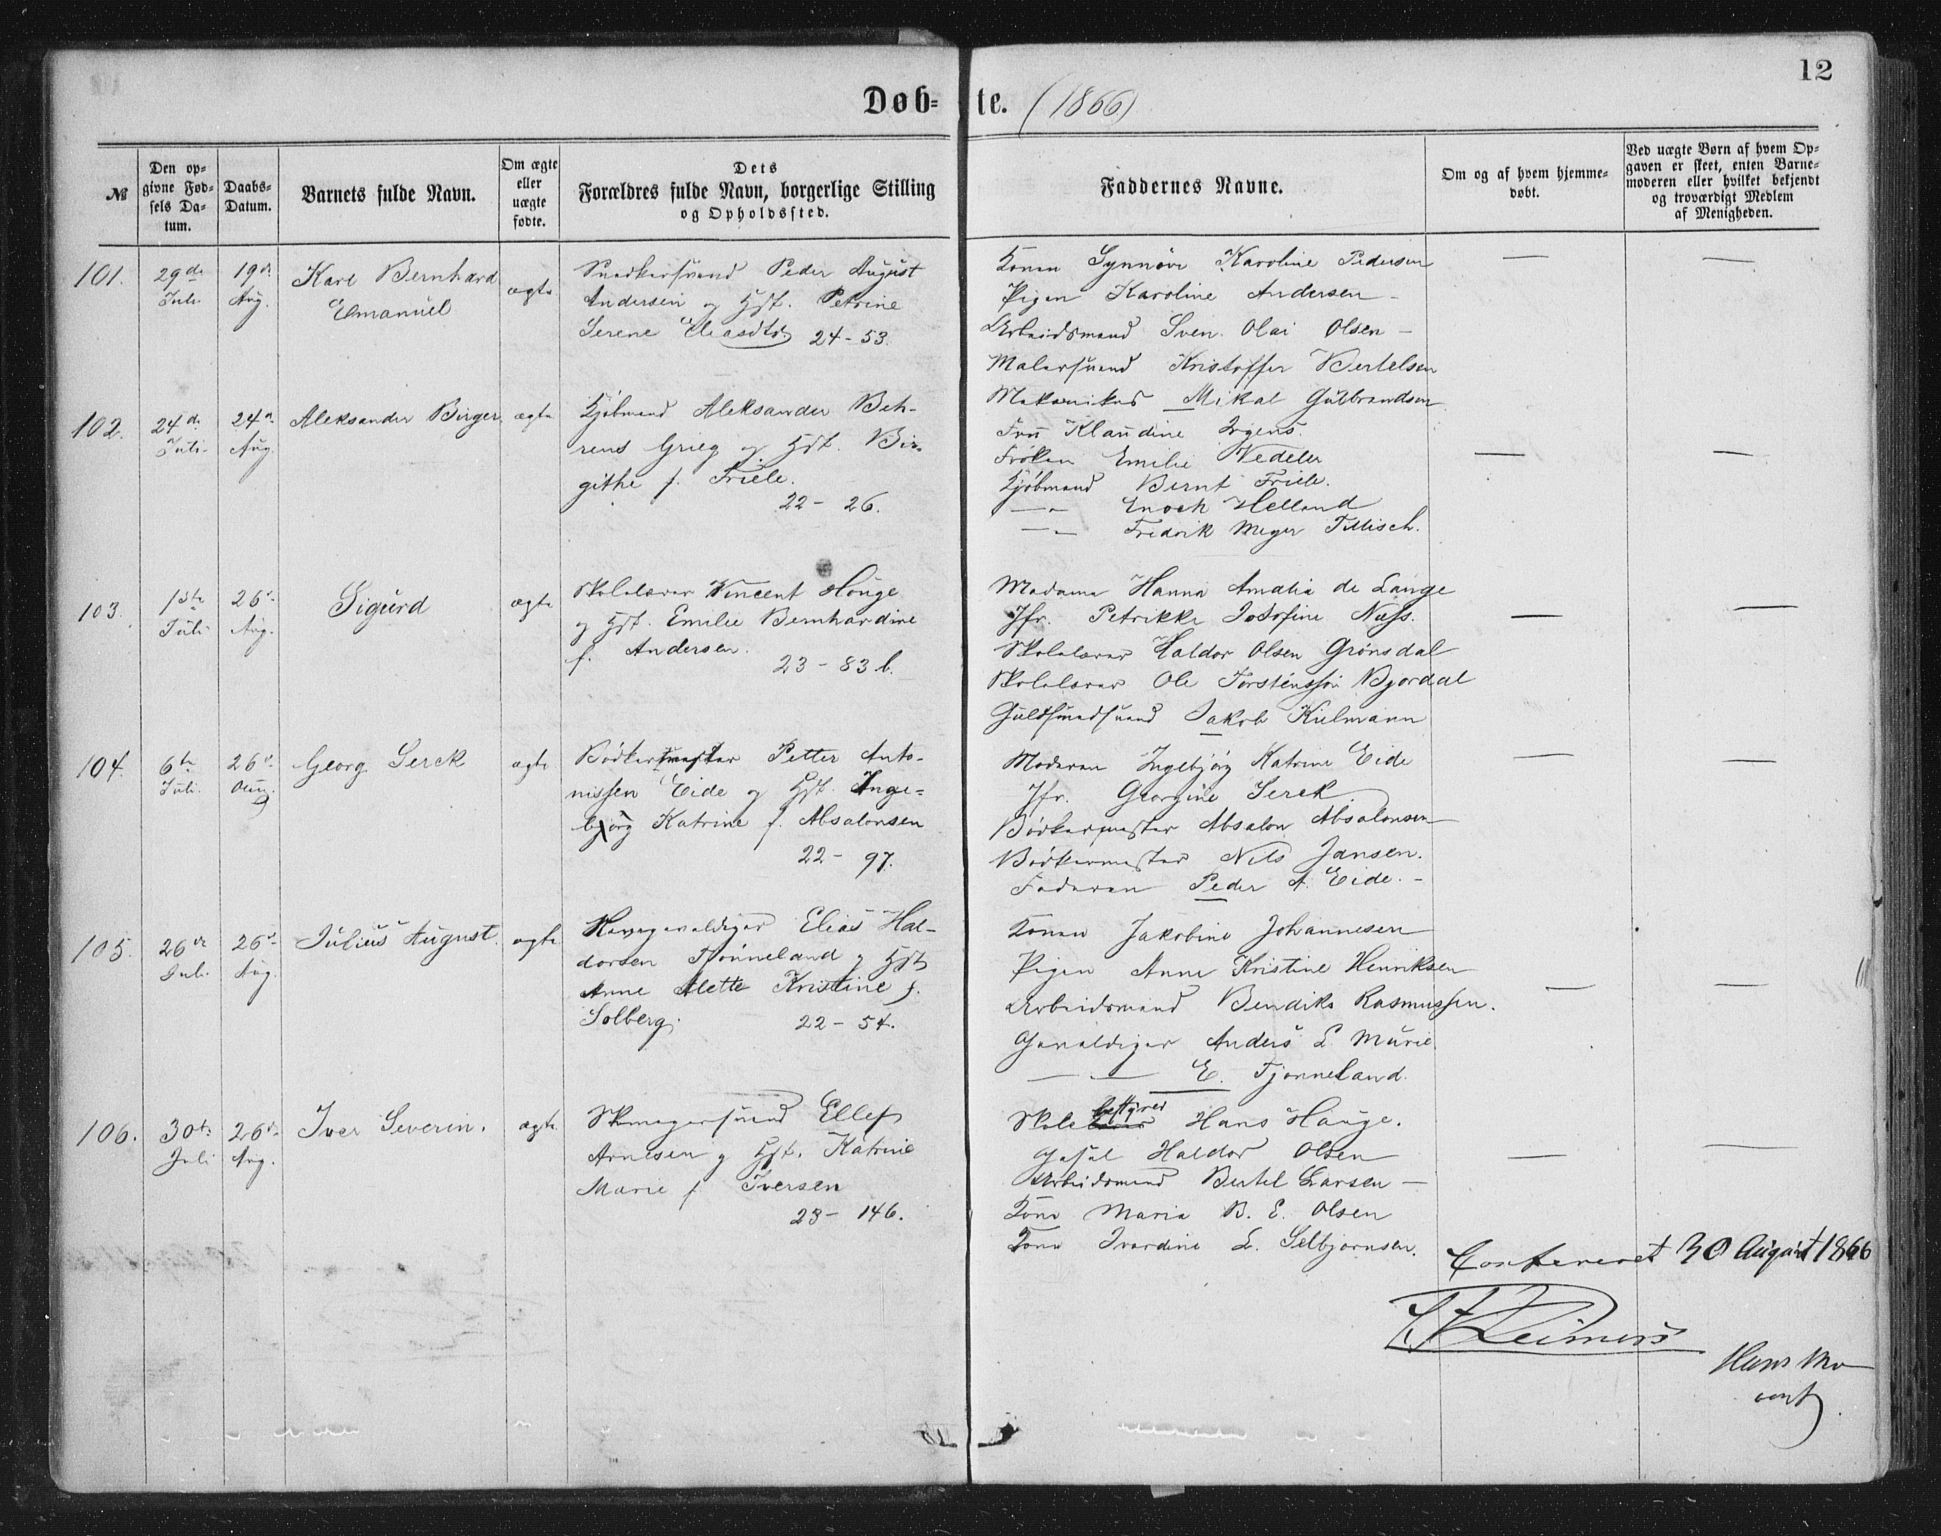 12
Døbte. (1866)
№
Den opgivne Fødsels Datum.
Daabs-Datum.
Barnets fulde Navn.
Om ægte eller uægte fødte.
Dets Forældres fulde Navn, borgerlige Stilling og Opholdssted.
Faddernes Navne.
Om og af hvem hjemmedøbt.
Ved uægte Børn af hvem Opgaven er skeet, enten Barnemoderen eller hvilket bekjendt og troværdigt Medlem af Menigheden.
101.
29de Juli
19de Aug.
Karl Bernhard
Emanuel
ægte
Snedkersvend Peder August
Andersen og Hst. Petrine
Serene Eliasdtr. 24-53.
Konen Synnøve Karoline Pedersen
Pigen Karoline Andersen -
Arbeidsmand Sven Olai Olsen -
Malersvend Kristoffer Bertelsen
Mekanikus Mikal Gulbrandsen
102.
24de Juli
24de Aug.
Aleksander Birger
ægte
Kjøbmand Aleksander Beh-
rens Grieg og Hst. Bir-
githe f. Friele.
22- 26.
Fru Klaudine Irgens.
Frøken Emilie Vedeler
Kjøbmand Bernt Friele.
—"— Enoch Helland
—"— Fredrik Meyer Tillisch.
103.
1ste Juli
26de Aug.
Sigurd
ægte
Skolelærer Vincent Houge
og Hst. Emilie Bernhardine
f. Andersen.
23-83 b.
Madame Hanna Amalia de Lange
Jfr. Petrikke Josefine Næss.
Skolelærer Haldor Olsen Grønsdal
Skolelærer Ole Torstensson Bjordal
Guldsmedsvend Jakob Kielmann
104.
6te Juli
26de Aug.
Georg Serck
ægte
Bødkermester Petter Anto-
nissen Eide og Hst. Inge-
bjørg Katrine f. Absalonsen
22- 97.
Moderen Ingebjørg Katrine Eide
Jfr. Georgine Serck.
Bødkermester Absalon Absalonsen
Bødkermester Nils Jansen.
Faderen Peder A. Eide. -
105.
26de Juli
26de Aug.
Julius August
ægte
Elias Hal-
dorsen Tjønneland og Hst
Anne Alette Kristine f.
Solberg. 22-54.
Konen Jakobine Johannesen
Pigen Anne Kristine Henriksen
Arbeidsmand Bendiks Rasmussen.
Gevaldiger Anders L. Murie
—"— E. Tjønneland.
106.
30te Juli
26de Aug.
Iver Severin.
ægte
Skomagersvend Ellef
Arnesen og Hst. Katrine
Marie f. Iversen
23- 146.
Skolebestyrer Hans Hauge.
Haldor Olsen
Arbeidsmand Bertel Larsen -
Kone Maria B. E. Olsen
Kone Ivardine L. Selbjørnsen.
Confereret 30 August 1866
Reimers
Hans